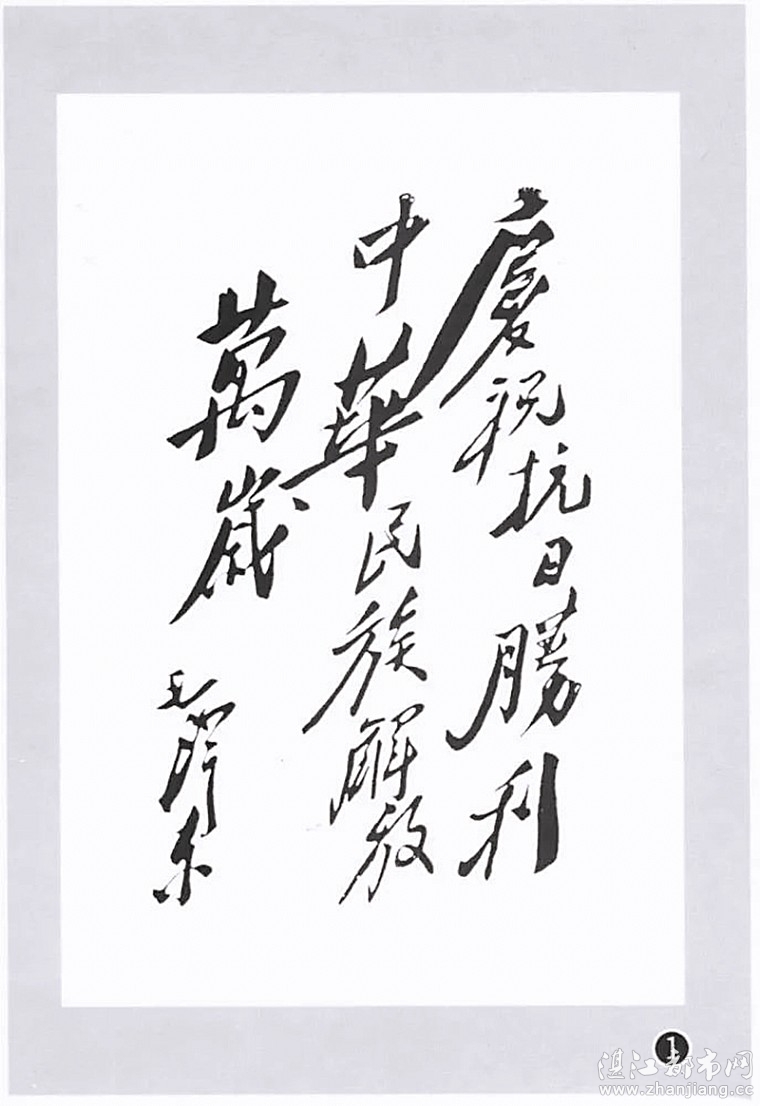 慶祝抗日勝利
中華民族解放
萬歲
毛澤东
1
湛江都市网
www.zhanjiang.cc